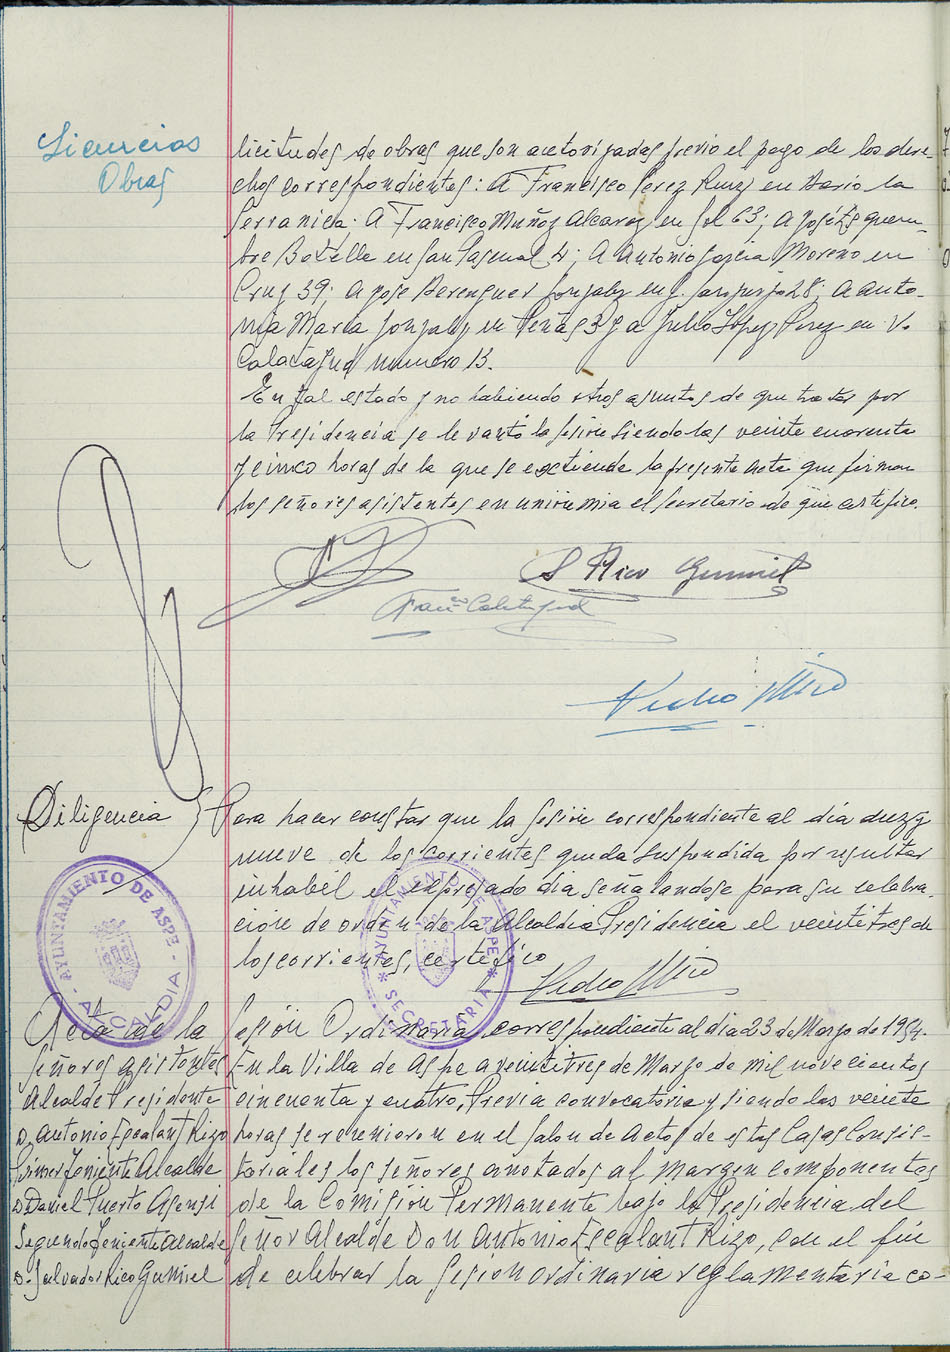 Licencias
Obras
licitudes de obras que son autorizadas previo el pago de los dere-
chos correspondientes: A Francisco Perez Ruiz en Bario la
Serranica; A Francisco Muñoz Alcaraz en Sol 63; A José Esquem-
bre Botella en San Pascual 4; A Antonio Garcia Moreno en
Cruz 39; A Jose Berenguer Gonzalez en 28; A Anto-
nia Maria Gonzalez en Peñas 3 y a Julio López Perez en V.
Calatayud numero 13.
En tal estado y no habiendo otros asuntos de que tratar por
la Presidencia se levantó la sesión siendo las veinte cuarenta
y cinco horas de la que se extiende la presente acta que firman
los señores asistentes en unión mia el Secretario de que certifico.
S Rico Gumiel
Franco Calatayud
Pedro Miro
Diligencia } Para hacer constar que la sesión correspondiente al día diez y
nueve de los corrientes queda suspendida por resultar
inhabil el expresado dia señalandose para su celebra-
ción de orden de la Alcaldia Presidencia el veintitres de
los corrientes, certifico
Pedro Miro
AYUNTAMIENTO DE ASPE - ALCALDIA -
AYUNTAMIENTO DE ASPE * SECRETARIA *
Acta de la Sesión Ordinaria correspondiente al dia 23 de Marzo de 1954.
Señores asistentes
Alcalde Presidente
D. Antonio Escalant Rizo
Primer Teniente Alcalde
D. Daniel Puerto Asensi
Segundo Teniente Alcalde
D. Salvador Rico Gumiel
En la Villa de Aspe a veintitres de Marzo de mil novecientos
cincuenta y cuatro, Previa convocatoria y siendo las veinte
horas se reunieron en el Salon de Actos de estas Casas Consis-
toriales los señores anotados al margen componentes
de la Comisión Permanente bajo la Presidencia del
Señor Alcalde Don Antonio Escalant Rizo, con el fin
de celebrar la Sesion ordinaria reglamentaria co-